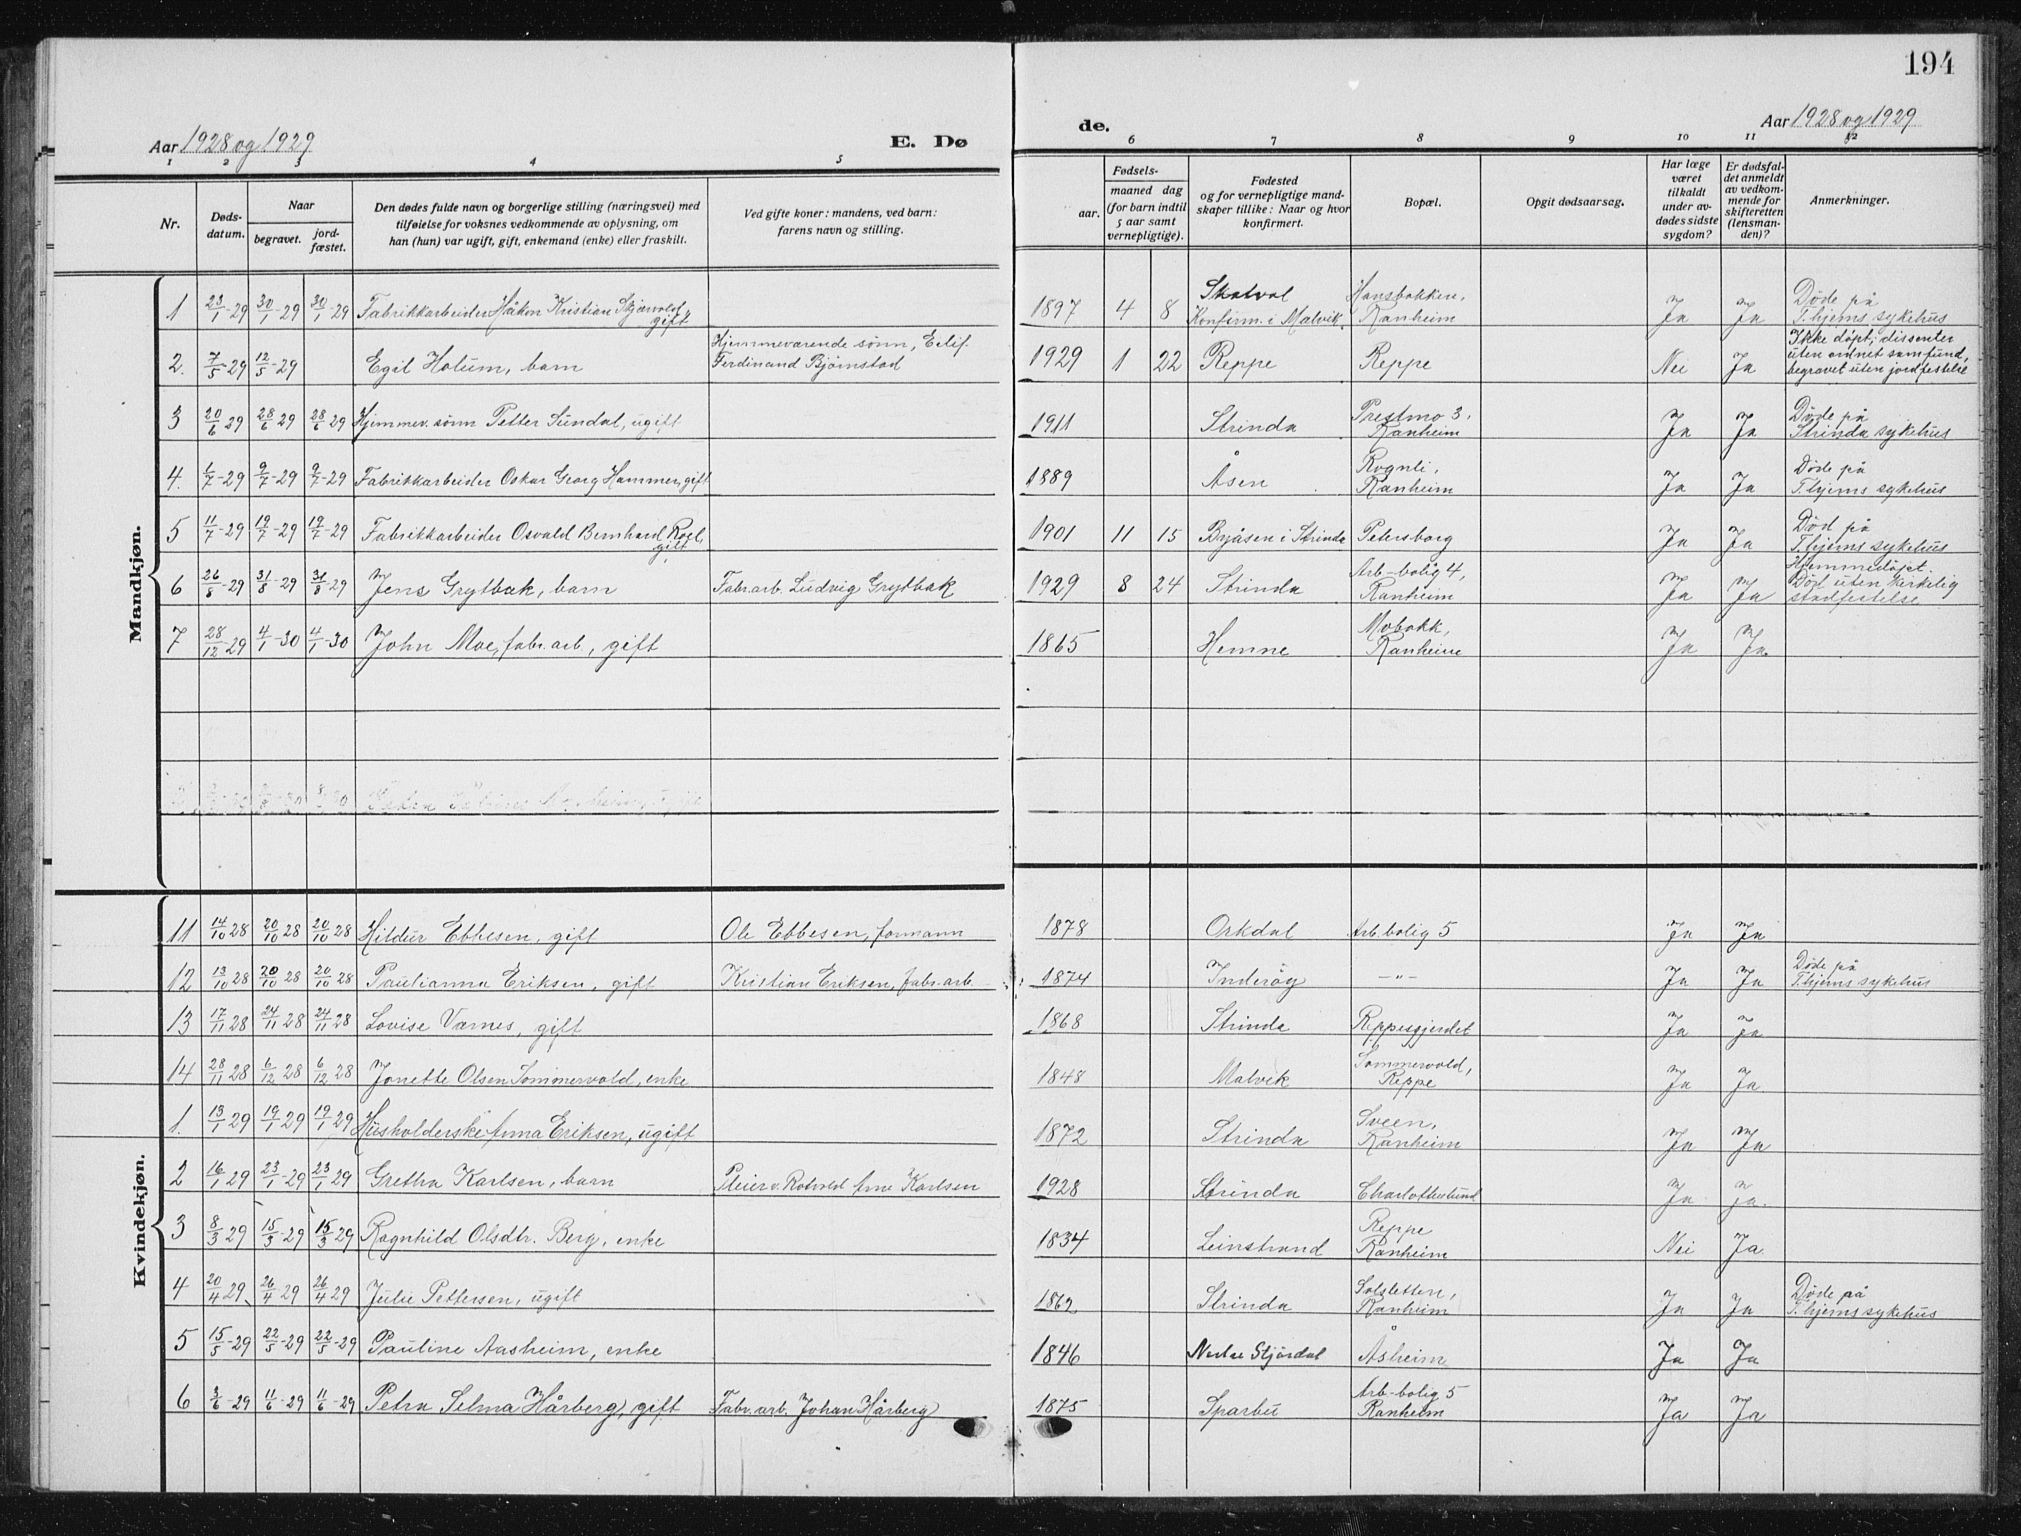 194
Aar 1928 og 1929
E. Dø
de.
Aar 1928 og 1929
1 2 3 4 5 6 7 8 9 10 11 12
Nr.
Døds-
datum.
Naar
begravet.
jord-
fæstet.
Den dødes fulde navn og borgerlige stilling (næringsvei) med
tilføielse for voksnes vedkommende av oplysning, om
han (hun) var ugift, gift, enkemand (enke) eller fraskilt.
Ved gifte koner: mandens, ved barn:
farens navn og stilling.
Fødsels-
aar.
maaned dag
(for barn indtil
5 aar samt
vernepligtige).
Fødested
og for vernepligtige mand-
skaper tillike: Naar og hvor
konfirmert.
Bopæl.
Opgit dødsaarsag.
Har læge
været
tilkaldt
under av-
dødes sidste
sygdom?
Er dødsfal-
det anmeldt
av vedkom-
mende for
skifteretten
(lensman-
den)?
Anmerkninger.
Mandkjøn.
1 23/1-29 30/1-29 30/1-29 Fabrikkarbeider Håkon Kristian Skjærvold,
gift
1897 4 8 Skatval
Konfirm. i Malvik.
Hansbakken,
Ranheim
Ja Ja Døde på
T.hjems sykehus
2. 7/5-29 12/5-29 Egil Hotum, barn
Hjemmeværende sønn, Eilif
Ferdinand Bjørnstad
1929 1 22 Reppe Reppe Nei Ja
Ikke døpt; dissenter
uten ordnet samfund,
begravet uten jordfestelse
3 20/6 29 28/6 29 28/6 29 Hjemmev. sønn Petter Sundal, ugift
1911 Strinda
Prestmo 3,
Ranheim
Ja Ja Døde på
Strinda sykehus
4. 1/7-29 9/7-29 9/7-29 Fabrikkarbeider Oskar Georg Hammer, gift
1889 Åsen
Rognli,
Ranheim
Ja Ja Døde på
T.hjems sykehus
5 11/7-29 19/7-29 19/7-29 Fabrikkarbeider Osvald Bernhard Roel,
gift
1901 11 15 Byåsen i Strinda Petersborg Ja Ja
Død på
T.hjems sykehus
6 26/8-29 31/8-29 31/8-29 Jens Grytbak, barn Fabr.arb. Ludvig Grytbak
1929 8 24 Strinda
Arb-bolig 4,
Ranheim
Ja Ja
Hjemmedøpt.
Død uten kirkelig
stadfestelse
7 28/12-29 4/1-30 4/1-30 John Moe, fabr.arb., gift
1865 Hemne
Mobakk,
Ranheim
Ja Ja.
Kvindekjøn.
11 14/10 28 20/10 28 20/10 28 Hildur Ebbesen, gift Ole Ebbesen, formann
1878 Orkdal Arb.bolig 5 Ja Ja
12 13/10 28 20/10 28 20/10 28 Paulianna Eriksen, gift Kristian Eriksen, fabr.arb.
1874 Inderøy -"- Ja Ja
Døde på
T.hjems sykehus
13 17/11 28 24/11 28 24/11 28 Lovise Værnes, gift
1868 Strinda Reppesgjerdet Ja Ja
14 28/11 28 6/12 28 6/12 28 Jonette Olsen Sommervold, enke
1848 Malvik
Sommervold,
Reppe
Ja Ja
1. 13/1 29 19/1 29 19/1 29 Husholderske Anna Eriksen, ugift
1872 Strinda
Sveen,
Ranheim
Ja Ja
2 16/1 29 23/1-29 23/1 29 Gretha Karlsen, barn Pleier v. Rotvold Arne Karlsen
1928 Strinda Charlottenlund Ja ja.
3 8/3 29 15/3-29 15/3 29 Ragnhild Olsdtr. Berg, enke
1834 Leinstrand
Reppe
Ranheim
Nei Ja
4 20/4 29 26/4 29 26/4 29 Julie Pettersen, ugift
1862 Strinda
Solsletten,
Ranheim
Ja Ja
Døde på
T.hjems sykehus
5 15/5-29 22/5-29 22/5-29 Pauline Aasheim, enke
1846 Nedre Stjørdal Åsheim Ja Ja
6 3/6-29 11/6-29 11/6-29 Petra Selma Hårberg, gift Fabr.arb. Johan Hårberg
1875 Sparbu
Arb-bolig 5
Ranheim
Ja Ja